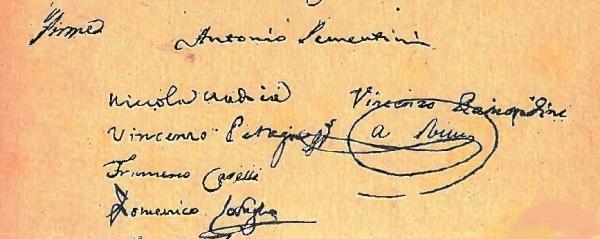 Firmed Antonio Sementini
Nicola Andria Vincenzo
Vincenzo Petagna
Francesco Caselli
Domenico